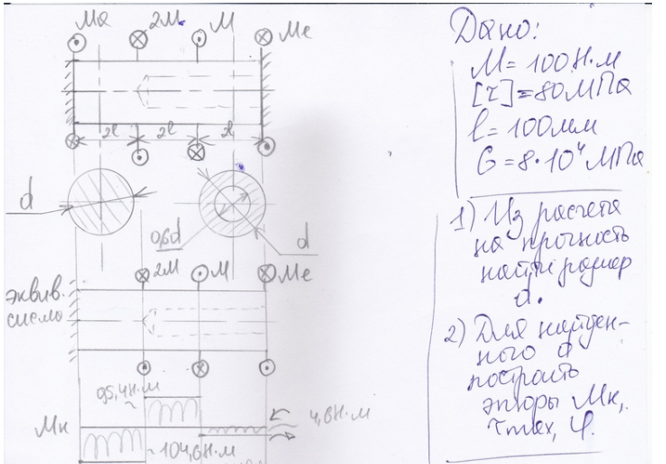 Mа 2M M Mе
2l 2l 2l
d
0,6d
d
2M M Mе
эквив.
система
95,4Н·м
4,6Н·м
Mк
~104,6Н·м
Дано:
M = 100Н·м
[τ] = 80МПа
l = 100мм
G = 8·10⁴ МПа
1) Из расчета
на прочность
найти размер
d.
2) Для найден-
ного d
построить
эпюры Mк,
τmax, φ.